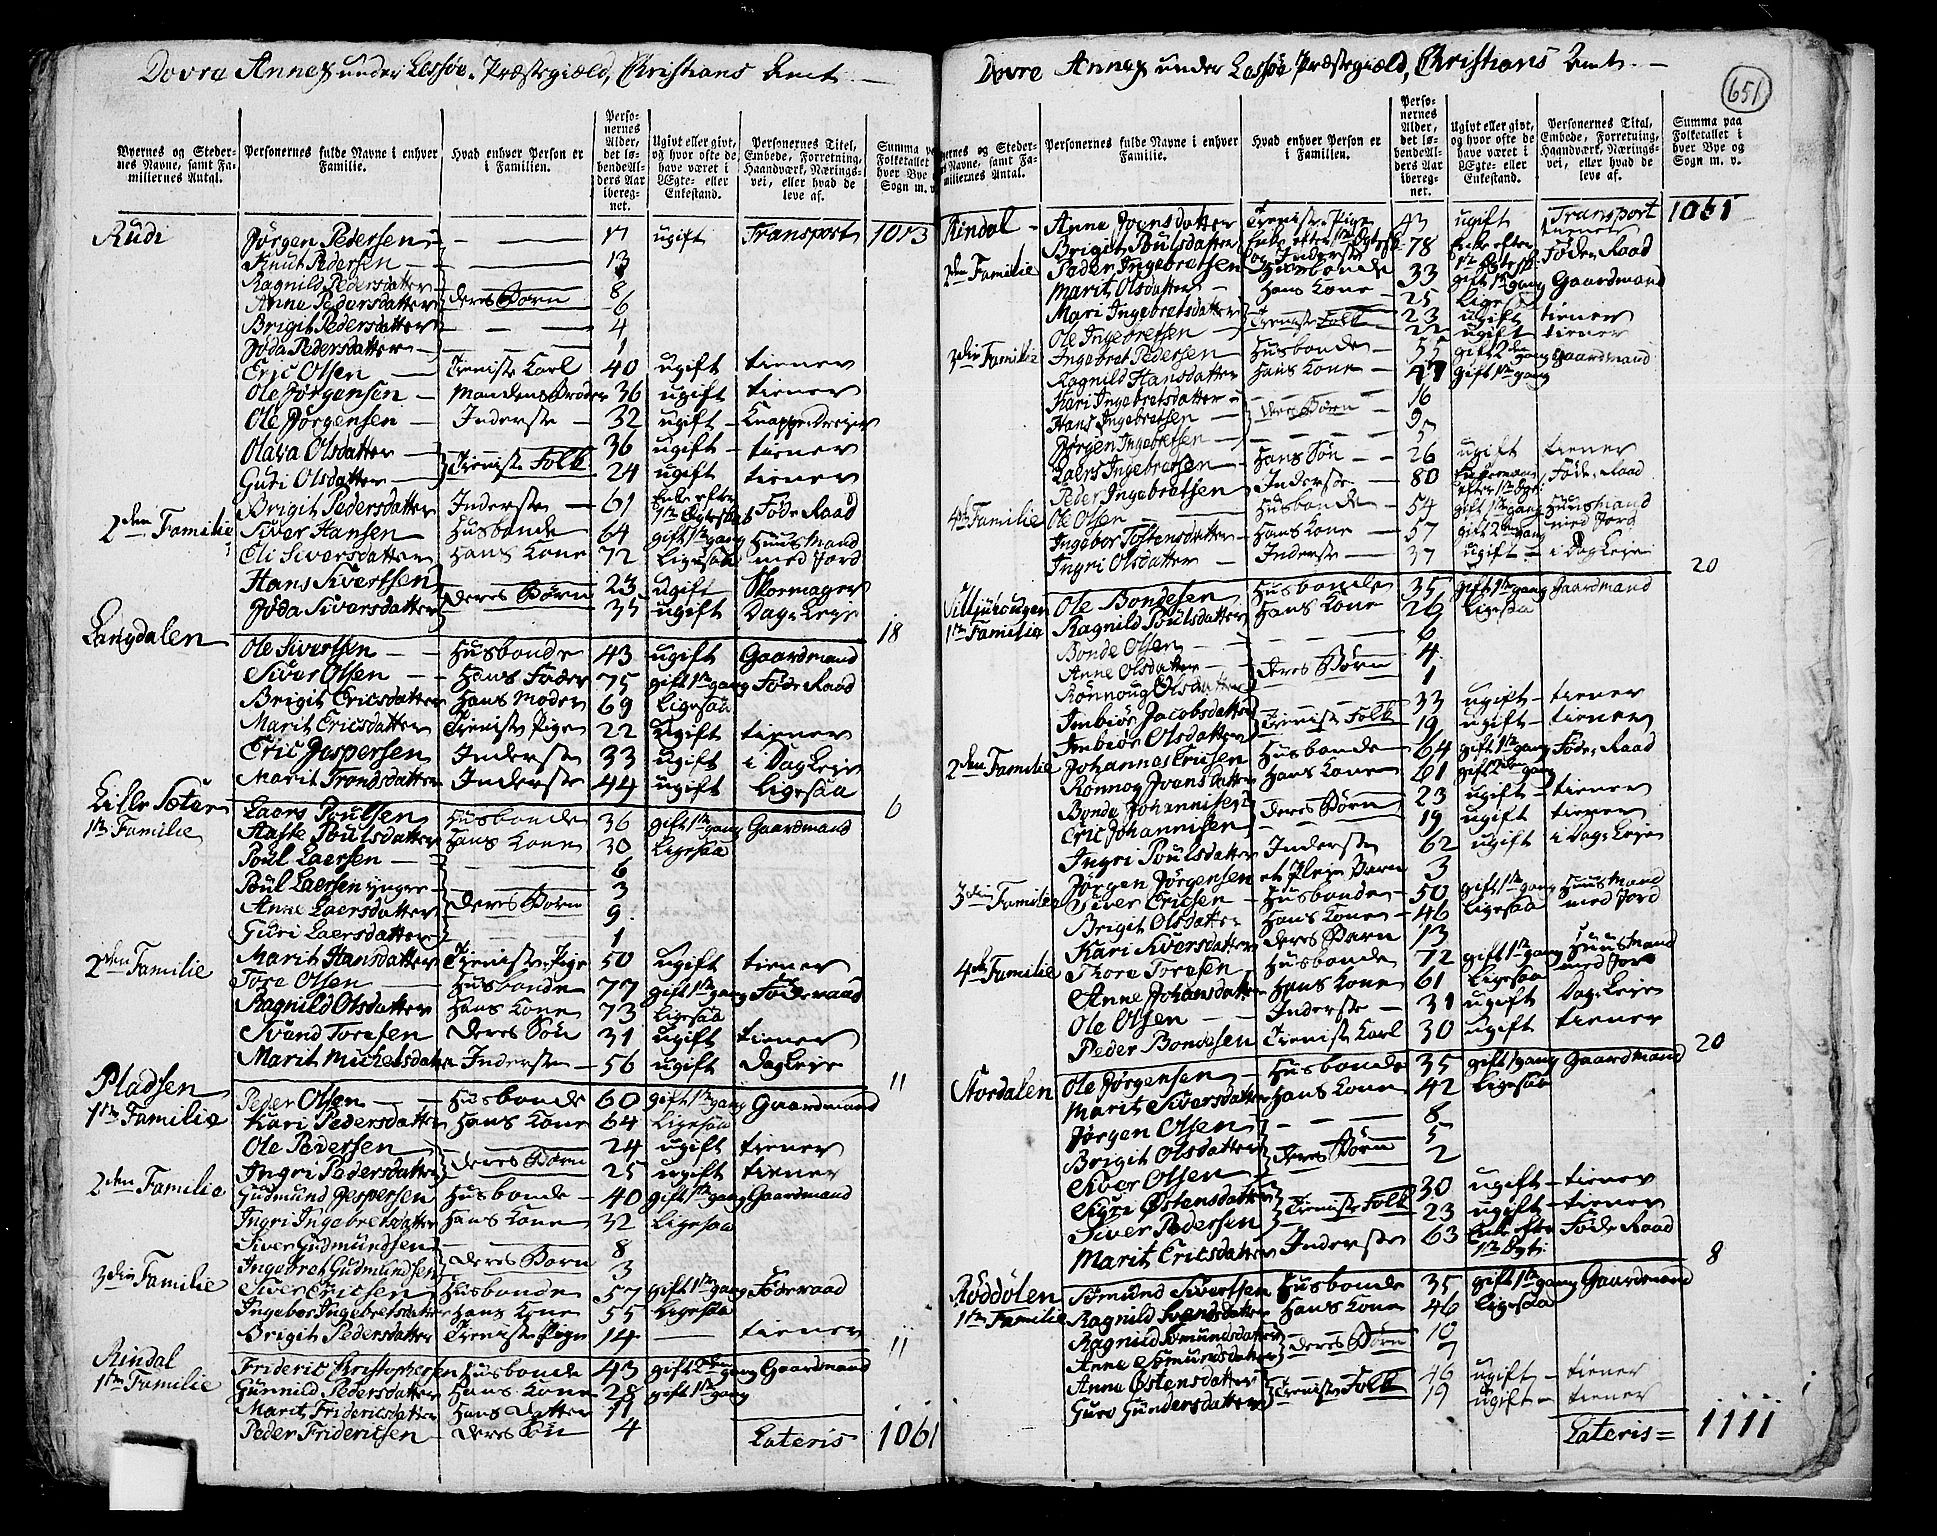 Dovre Annex under Lessøe Præstegiæld, Christians Amt.
Byernes og Stedernes Navne, samt Familiernes Antal.
Personernes fulde Navne i enhver Familie.
Hvad enhver Person er i Familien.
Personernes Alder, det løbende Alders Aar iberegnet.
Ugivt eller givt, og hvor ofte de have været i Ægte- eller Enkestand.
Personernes Titel, Embede, Forretning, Haandværk, Næringsvei, eller hvad de leve af.
Summa paa Folketallet i hver Bye og Sogn m. v.
Rudi Jørgen Pedersen 17 ugift Transport 1013
Knut Pedersen 13
Ragnild Pedersdatter 8
Anne Pedersdatter deres Børn 6
Brigit Pedersdatter 4
Joda Pedersdatter 1
Eric Olsen Tieniste Karl 40 ugift tiener
Ole Jørgensen Mandens Broder 36 ugift tiener
Ole Jørgensen Inderste 32 ugift Knappe Dreier
Olava Olsdatter 36 ugift tiener
Guri Olsdatter Tieniste Folk 24 ugift tiener
Brigit Pedersdatter Inderste 61 Enke efter 1te Ægteskab Føde Raad
2den Familie Siver Hansen Husbonde 64 gift 1te gang Huus Mand
Eli Siversdatter Hans Kone 72 Ligesaa med Jord
Hans Sivertsen 23 ugift Skomager
Joda Siversdatter deres Børn 35 ugift Dag Leye
18
Langdalen Ole Sivertsen Husbonde 43 ugift Gaardmand
Siver Olsen Hans Fader 75 gift 1te gang Føde Raad
Brigit Ericsdatter Hans Moder 69 Ligesaa
Marit Ericsdatter Tieniste Pige 22 Ugift tiener
Eric Jespersen Inderste 33 ugift i Dag Leje
Marit Trondsdatter Inderste 44 ugift Ligesaa
6
Lille Sæter Laers Poulsen Husbonde 36 gift 1te gang Gaardmand
1te Familie Aaste Poulsdatter Hans Kone 30 Ligesaa
Poul Laersen 6
Poul Laersen yngre 3
Anne Laersdatter deres Børn 9
Guri Laersdatter 1
Marit Hansdatter Tieniste Pige 50 Ugift tiener
2den Familie Tore Olsen Husbonde 77 gift 1te gang Føderaad
Ragnild Olsdatter Hans Kone 73 Ligesaa
Svend Toresen deres Søn 31 Ugift tiener
Marit Michelsdatter Inderste 56 ugift dagLeje
11
Pladsen Peder Olsen Husbonde 60 gift 1te gang Gaardmand
1te Familie Kari Pedersdatter Hans Kone 64 Ligesaa
Ole Pedersen 24 ugift tiener
Ingri Pedersdatter deres Børn 25 ugift tiener
2den Familie Gudmund Jespersen Husbonde 40 gift 1te gang Gaardmand
Ingri Ingebretsdatter Hans Kone 32 Ligesaa
Siver Gudmundsen 8
Ingebret Gudmundsen deres Børn 3
3die Familie Siver Ericsen Husbonde 57 gift 1te gang Føderaad
Ingebor Ingebretsdatter Hans Kone 55 Ligesaa
Brigit Pedersdatter Tieniste Pige 14 tiener
11
Rindal Frideric Christophersen Husbonde 43 gift 2den gang Gaardmand
1te Familie Gunnild Pedersdatter Hans Kone 28 gift 1te gang
Marit Fridericsdatter Hans Datter 11
Peder Fridericsen deres Søn 4
Lateris 1061
Dovre Annex under Lessøe Præstegiæld, Christians Amt.
651
Byernes og Stedernes Navne, samt Familiernes Antal.
Personernes fulde Navne i enhver Familie.
Hvad enhver Person er i Familien.
Personernes Alder, det løbende Alders Aar iberegnet.
Ugivt eller givt, og hvor ofte de have været i Ægte- eller Enkestand.
Personernes Titel, Embede, Forretning, Haandværk, Næringsvei, eller hvad de leve af.
Summa paa Folketallet i hver Bye og Sogn m. v.
Rindal Anne Joensdatter Tieniste Pige 43 ugift Transport tiener 1061
Brigit Poulsdatter Enke efter 1te Ægtesk. og Inderste 78 Enke efter 1te Ægtesk. Føde Raad
2den Familie Peder Ingebretsen Husbonde 33 gift 1te gang Gaardmand
Marit Olsdatter Hans Kone 25 Ligesaa
Mari Ingebretsdatter 23 ugift tiener
Ole Ingebretsen Tieniste Folk 22 ugift tiener
3die Familie Ingebret Pedersen Husbonde 55 gift 2den gang Gaardmand
Ragnild Hansdatter Hans Kone 47 gift 1te gang
Kari Ingebretsdatter 16
Hans Ingebretsen deres Børn 9
Jørgen Ingebretsen 5
Laers Ingebretsen Hans Søn 26 ugift tiener
Peder Ingebretsen Inderste 80 Enkemand efter 1te Ægt. Føde Raad
4de Familie Ole Olsen Husbonde 54 gift 1te gang Huusmand
Ingebor Tostensdatter Hans Kone 57 gift 2den gang med Jord
Ingri Olsdatter Inderste 37 ugift i Dag Leje
20
Ole Bondesen Husbonde 35 gift 1te gang Gaardmand
1te Familie Ragnild Poulsdatter Hans Kone 26 Ligesaa
Bonde Olsen 6
Anne Olsdatter deres Børn 4
Rønnoug Olsdatter 1
Imbiør Jacobsdatter 33 ugift tiener
Imbiør Olsdatter Tieniste Folk 19 ugift tiener
2den Familie Johannes Ericsen Husbonde 64 gift 1te gang Føde Raad
Rønnog Joensdatter Hans Kone 61 gift 2den gang
Bonde Johannisen deres Børn 23 ugift tiener
Eric Johannisen 19 ugift tiener
Ingri Poulsdatter Inderste 62 ugift i Dag Leje
Jørgen Jørgensen et Pleje Barn 3
3die Familie Siver Ericsen Husbonde 50 gift 1te gang Huus Mand
Brigit Olsdatter Hans Kone 46 Ligesaa med Jord
Kari Siversdatter deres Barn 13
4de Familie Thore Toresen Husbonde 72 gift 1te gang Huus Mand
Anne Johansdatter Hans Kone 61 Ligesaa med Jord
Ole Olsen Inderste 31 ugift Dag Leje
Peder Bondesen Tieniste Karl 30 ugift tiener
20
Stordalen Ole Jørgensen Husbonde 35 gift 1 gang Gaardmand
Marit Siversdatter Hans Kone 42 Ligesaa
Jørgen Olsen 8
Brigit Olsdatter deres Børn 5
Siver Olsen 2
Sigri Østensdatter 30 ugift tiener
Siver Pedersen Tieniste Folk 23 ugift tiener
Marit Ericsdatter Inderste 63 Enke efter 1te Ægt. Føde Raad
8
Sømund Sivertsen Husbonde 35 gift 1te gang Gaardmand
1te Familie Ragnild Svendsdatter Hans Kone 46 Ligesaa
Ragnild Sømundsdatter 10
Anne Sømundsdatter deres Børn 7
Anne Østensdatter 46 ugift tiener
Guro Gundersdatter Tieniste Folk 19 ugift tiener
Lateris 1111